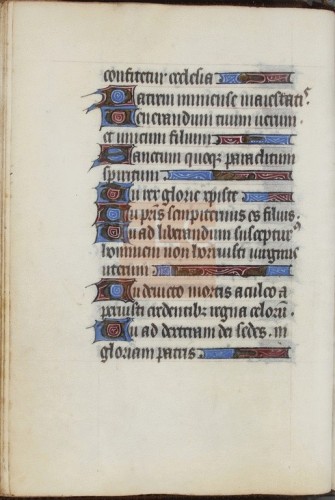 confitetur ecclesia
Patrem inmense maiestatis
Venerandum tuum uerum
et unicum filium
Sanctum quoq; paraclitum
spiritum
Tu rex glorie xpiste
Tu pris sempiternus es filius
Tu ad liberandum suscepturus
hominem non horruisti uirginis
uterum
Tu deuicto mortis aculeo a
peruisti credentib; regna celorū
Tu ad dexteram dei sedes in
gloriam patris